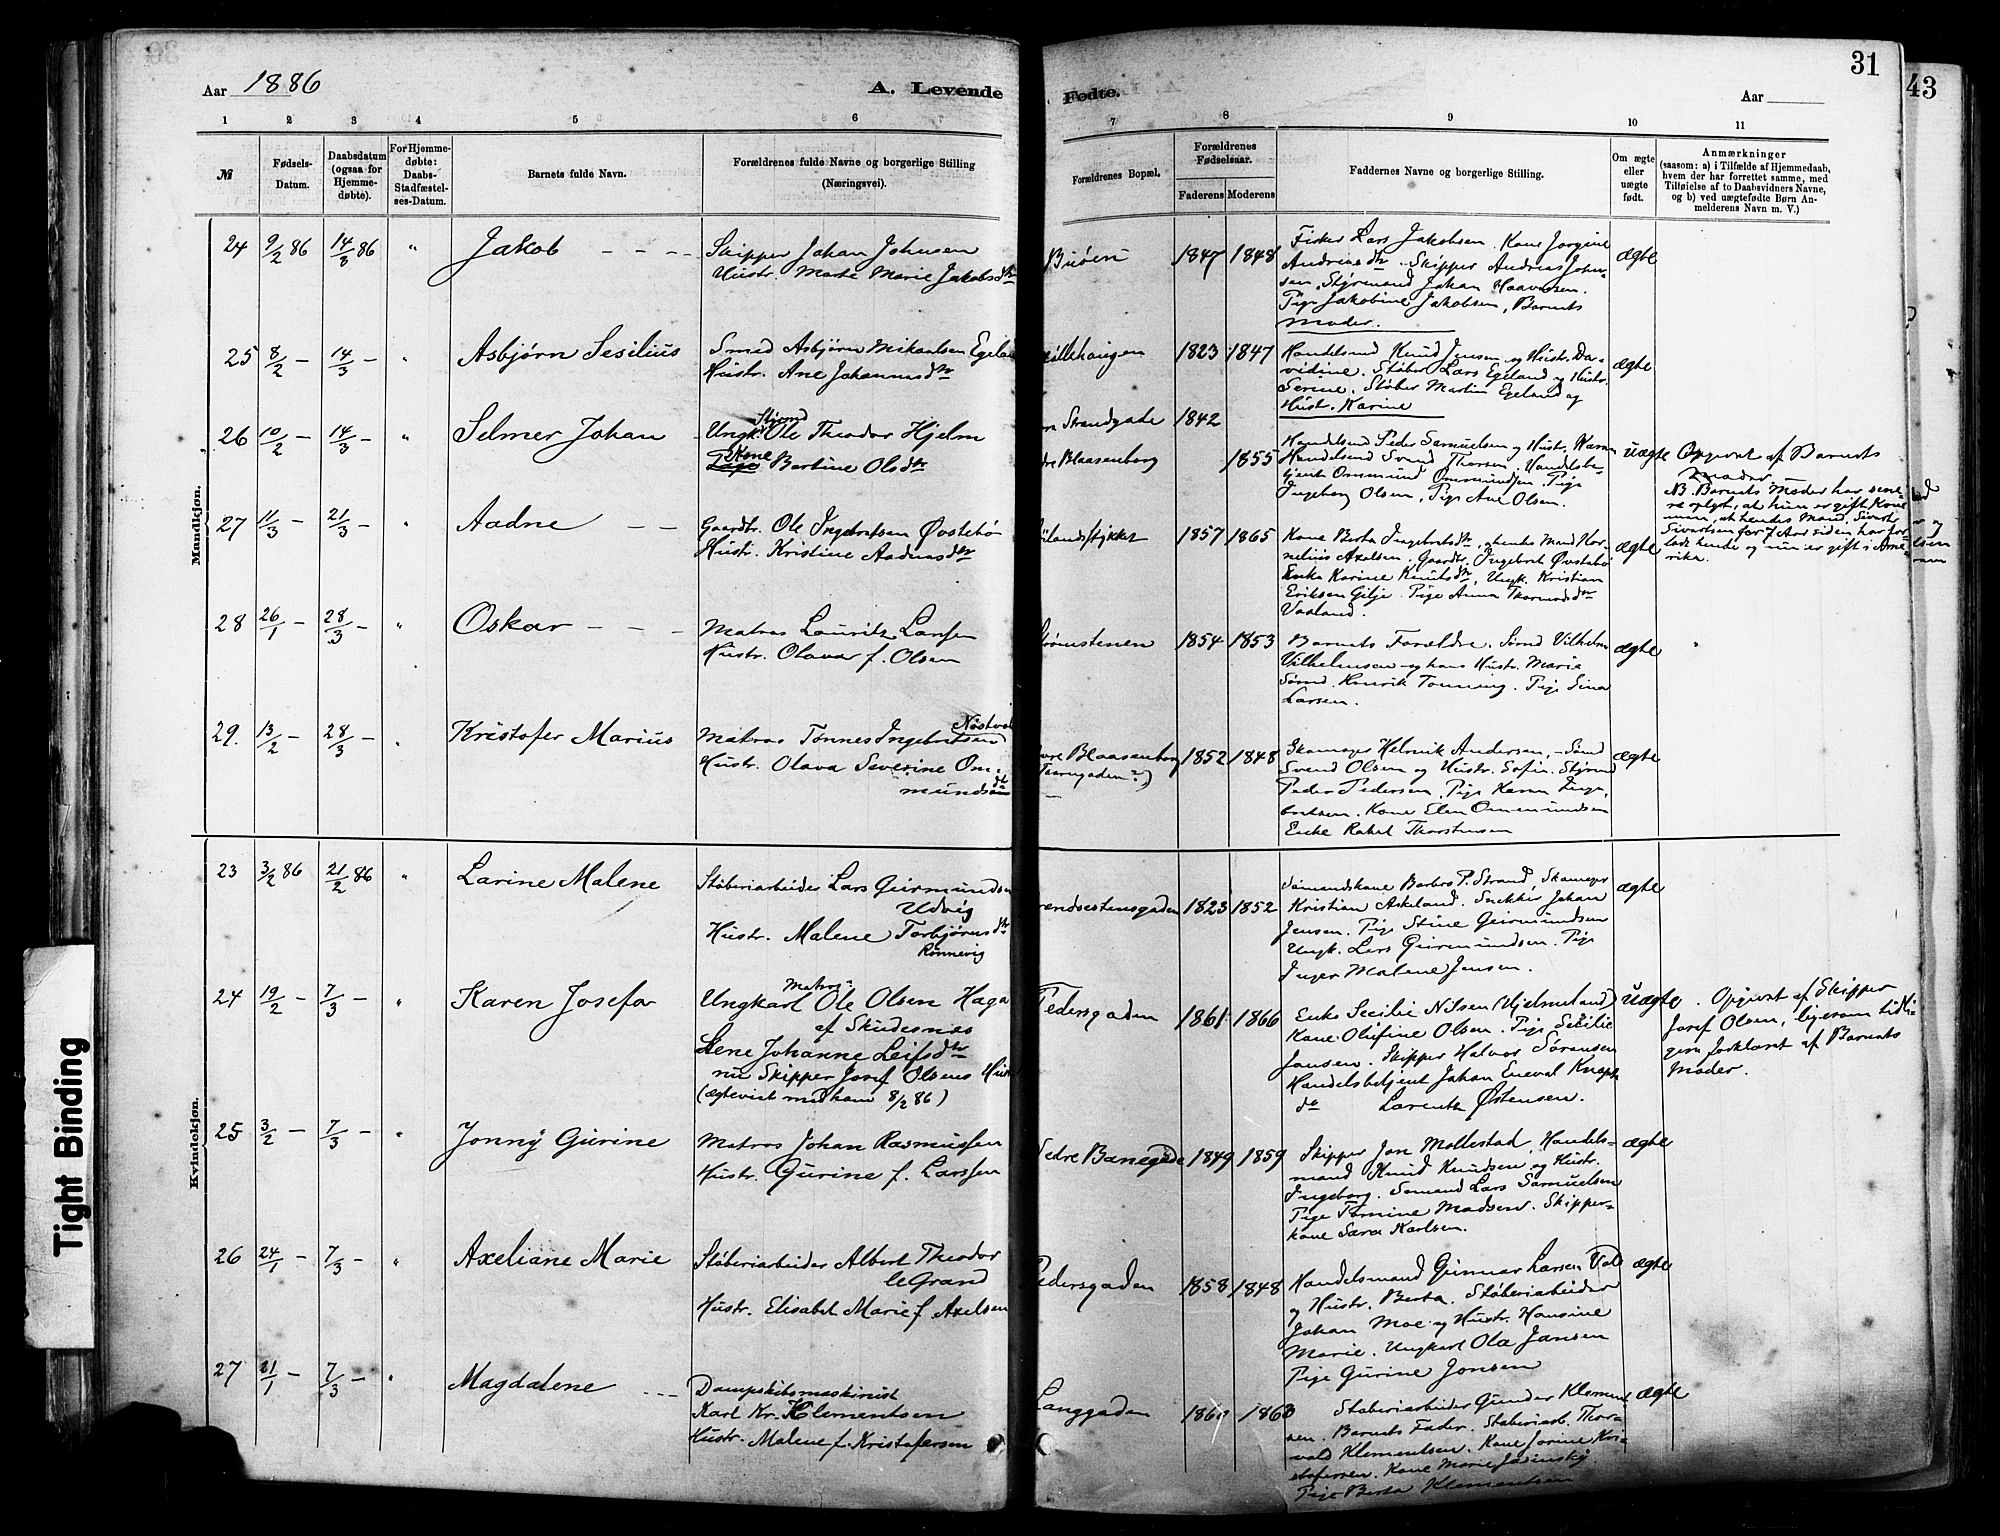 Aar 1886
A. Levende Fødte.
Aar
31
43
1 2 3 4 5 6 7 8 9 10 11
№
Fødsels-Datum.
Daabsdatum (ogsaa for Hjemmedøbte).
For Hjemmedøbte: Daabs-Stadfæstelses-Datum.
Barnets fulde Navn.
Forældrenes fulde Navne og borgerlige Stilling (Næringsvei).
Forældrenes Bopæl.
Forældrenes Fødselsaar.
Faderens Moderens
Faddernes Navne og borgerlige Stilling.
Om ægte eller uægte født.
Anmærkninger
(saasom: a) i Tilfælde af Hjemmedaab,
hvem der har forrettet samme, med
Tilføielse af to Daabsvidners Navne,
og b) ved uægtefødte Børn An-
melderens Navn m. V.)
Mandkjøn.
24 9/2 86 14/3 86 " Jakob
Skipper Johan Johnsen
Hustr. Marte Marie Jakobsdtr
Buøen 1847 1848
Fisker Lars Jakobsen. Kone Jorgine
Andreasdtr. Skipper Andreas John-
sen. Styrmand Johan Haavesen.
Pige Jakobine Jakobsen, Barnets
Moder.
ægte
25 8/2 – 14/3 – " Asbjørn Sesilius
Smed Asbjørn Mikaelsen Egeland
Hustr. Ane Johannesdtr
1823 1847
Handelsmd Knud Jensen og Hustr. Da-
vidine. Støber Lars Egeland og Hustr.
Serine. Støber Martin Egeland og
Hustr. Karine
ægte
26 10/2 – 14/3 – " Selmer Johan
Ungk. Styrmd Ole Theodor Hjelm
Pige Kone Bertine Olsdtr
Strandgade 1842
Blaasenborg 1855
Handelsmd Peder Samuelsen og Hustr. Karen
Handelsmd Svend Thorsen. Handelsbe-
tjent Ommund Ommundsen. Pige
Ingeborg Olsen, Pige Ane Olsen.
uægte
Opgivet af Barnets
Moder.
NB. Barnets Moder har sene-
re oplyst, at hun er gift Kone
men, at hendes Mand, Sivert
Sivertsen for 7 Aar siden, har for-
ladt hende og nu er gift i Ame-
rika.
27 11/3 – 21/3 – " Aadne
Gaardbr. Ole Ingebretsen Øvstebø
Hustr. Kristine Aadnesdtr
1857 1865
Kone Berta Ingebretsdtr, hendes Mand Kor-
nelius Axelsen. Gaardbr. Ingebret Øvstebø
Enke Karine Knutsdtr, Ungk. Kristian
Eriksen Gilje. Pige Anna Thormodsdtr
Vaaland.
ægte
28 26/1 – 28/3 – " Oskar
Matros Lauritz Larsen
Hustr. Olava f. Olsen
1854 1853
Barnets Forældre. Sømd Vilhelm
Vilhelmsen og hans Hustr. Marie
Sømd. Henrik Tonning. Pige Sina
Larsen.
ægte "
29. 13/2 – 28/3 – " Kristofer Marius
Matros Tønnes Ingebretsen Nøstvold
Hustr. Olava Severine Om-
mundsdtr
Blaasenborg 1852 1848
Skomager Helmik Andersen, Sømd
Svend Olsen og Hustr. Sofie. Styrmd
Peder Pedersen, Pige Karen Inge-
bretsen. Kone Elen Ommundsen
Enke Rakel Thorstensen
ægte
Kvindekjøn.
23 3/2 86 21/2 86 " Larine Malene
Støberiarbeider Lars Geirmundsen
Udvig
Hustr. Malene Torbjørnsdtr
Rønnevig
1823 1852
Sømandskone Barbro P. Strand, Skomager
Kristian Askeland. Snekker Johan
Jensen. Pige Stine Geirmundsen
Ungk. Lars Geirmundsen. Pige
Inger Malene Jensen.
ægte
24 19/2 – 7/3 – " Karen Josefa
Ungkarl Matros Ole Olsen Haga
af Skudesnæs
Lene Johanne Leifsdtr
nu Skipper Josef Olsens Hustr
(ægteviet med ham 8/2 86)
Pedersgaden 1861 1866
Enke Secilie Nilsen (Hjelmeland)
Kone Olufine Olsen. Pige Secilie
Jansen. Skipper Halvor Sørensen
Handelsbetjent Johan Eneval Knaph
do Larentz Østensen.
uægte
Opgivet af Skipper
Josef Olsen, ligesom tidli-
gere forklaret af Barnets
Moder.
25 3/2 – 7/3 – " Jonny Gurine
Matros Johan Rasmussen
Hustr. Gurine f. Larssen
Nedre Banegade 1849 1859
Skipper Jon Mollestad, Handels-
mand Knud Knudsen og Hustr.
Ingeborg. Sømand Lars Samuelsen
Pige Tomine Madsen. Skipper-
kone Sara Karlsen.
ægte
26 24/1 – 7/3 – " Axeliane Marie
Støberiarbeider Albert Theodor
leGrand
Hustr. Elisabet Marie f. Axelsen
Pedersgaden 1858 1848
Handelsmand Gunnar Larsen Vold
og Hustr. Berta. Støberiarbeider
Johan Moe og Hustr. Hansine
Marie. Ungkarl Ola Jansen
Pige Gurine Jonsen
ægte
27 21/1 – 7/3 – " Magdalene
Dampskibsmaskinist
Karl Kr. Klementsen
Hustr. Malene f. Kristofersen
Langgaden 1863
Støberiarbeider Gunder Klement-
sen. Barnets Fader. Støberiarb. Thor-
vald Klementsen. Kone Jorine Kri-
stofersen. Kone Marie
Pige Berta Klementsen
ægte
Tight Binding